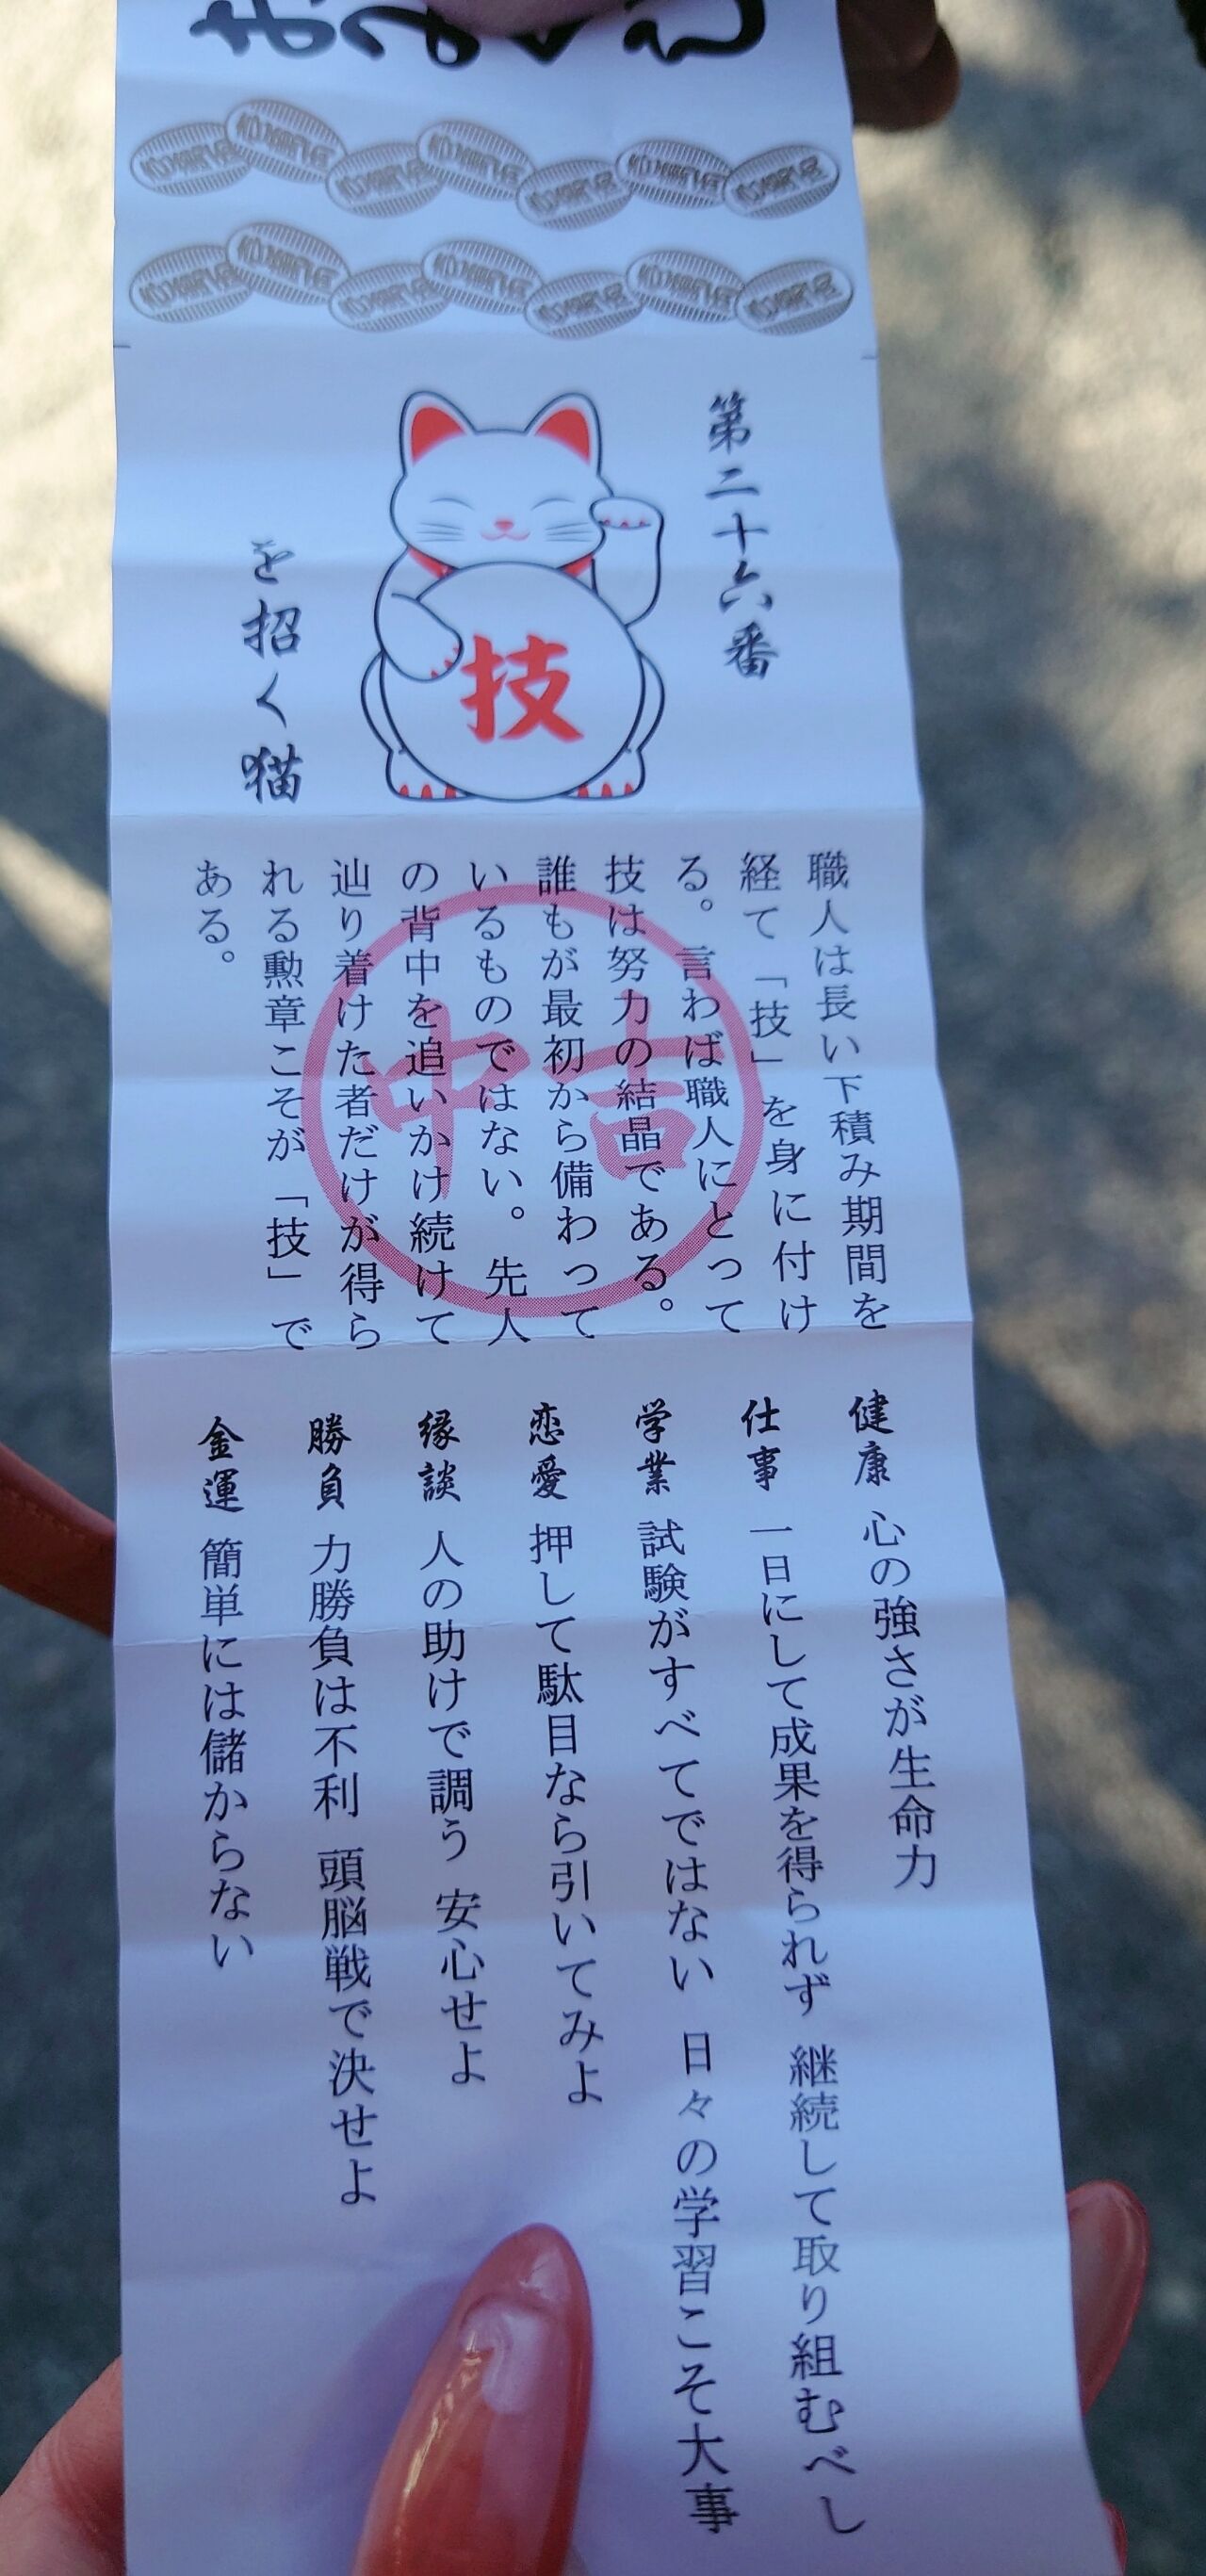 おみくじ
第二十六番
技
を招く猫
職人は長い下積み期間を
経て「技」を身に付け
る。言わば職人にとって
技は努力の結晶である。
誰もが最初から備わって
いるものではない。先人
の背中を追いかけ続けて
辿り着けた者だけが得ら
れる勲章こそが「技」で
ある。
中吉
健康 心の強さが生命力
仕事 一日にして成果を得られず 継続して取り組むべし
学業 試験がすべてではない 日々の学習こそ大事
恋愛 押して駄目なら引いてみよ
縁談 人の助けで調う 安心せよ
勝負 力勝負は不利 頭脳戦で決せよ
金運 簡単には儲からない